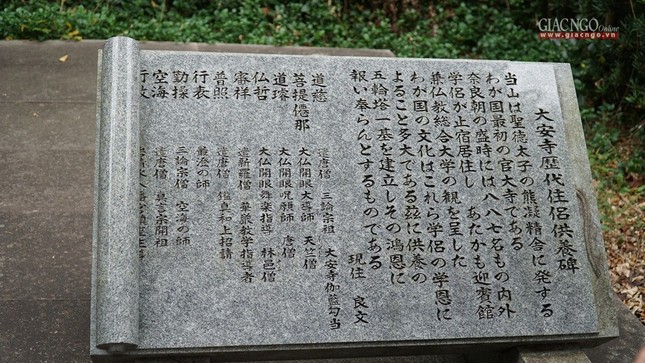 大安寺歴代住侶供養碑
当山は聖徳太子の熊凝精舎に発する
わが国最初の官大寺である
奈良朝の盛時には八八七名もの内外
学侶が止宿居住し あたかも迎賓館
兼仏教総合大学の観を呈した
わが国の文化はこれら学侶の学恩に
よること多大である玆に供養の
五輪塔一基を建立しその鴻恩に
報い奉らんとするものである
現住 良文
道慈 遣唐僧 三論宗祖 大安寺伽藍勾当
菩提僊那 大仏開眼大導師 天竺僧
道璿 大仏開眼呪願師 唐僧
仏哲 大仏開眼舞楽指導 林邑僧
審祥 遣新羅僧 華厳教学指導者
普照 遣唐僧 鑑真和上招請
行表 最澄の師
勤操 三論宗僧 空海の師
空海 遣唐僧 真言宗開祖
行教
GIACNGO Online
www.giacngo.vn